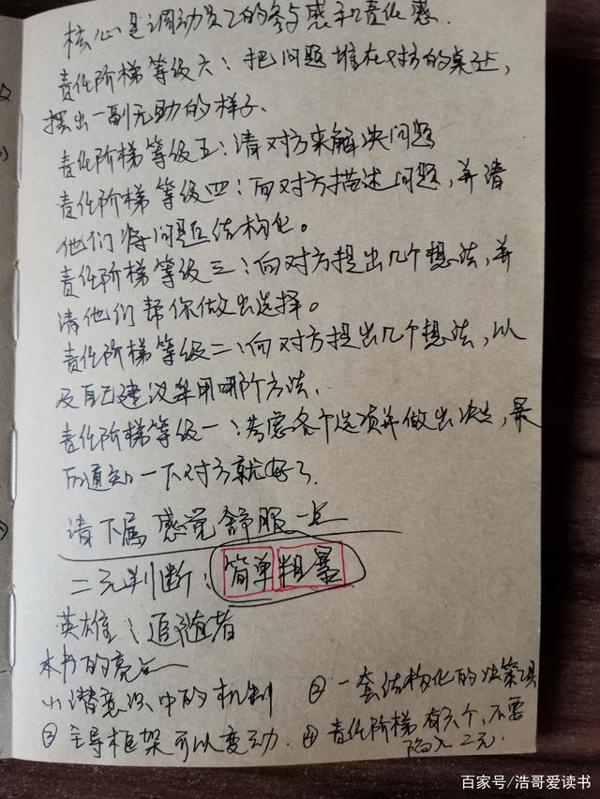 核心是调动员工的参与感和责任感.
责任阶梯等级六:把问题堆在对方的桌上,
摆出一副无助的样子.
责任阶梯等级五:请对方来解决问题
责任阶梯等级四:向对方描述问题,并请
他们将问题结构化。
责任阶梯等级三:向对方提出几个想法,并
请他们帮你做出选择。
责任阶梯等级二:向对方提出几个想法,以
及自己建议采用哪个方法.
责任阶梯等级一:考虑各个选项并做出决定,最
后通知一下对方就好了
请下属感觉舒服一点
二元判断:简单粗暴
英雄:追随者
本书的亮点
(1)潜意识中的机制 ② 一套结构化的决策工具
③ 主导框架可以变动. ④ 责任阶梯有六个,不要
陷入二元.
百家号/浩哥爱读书